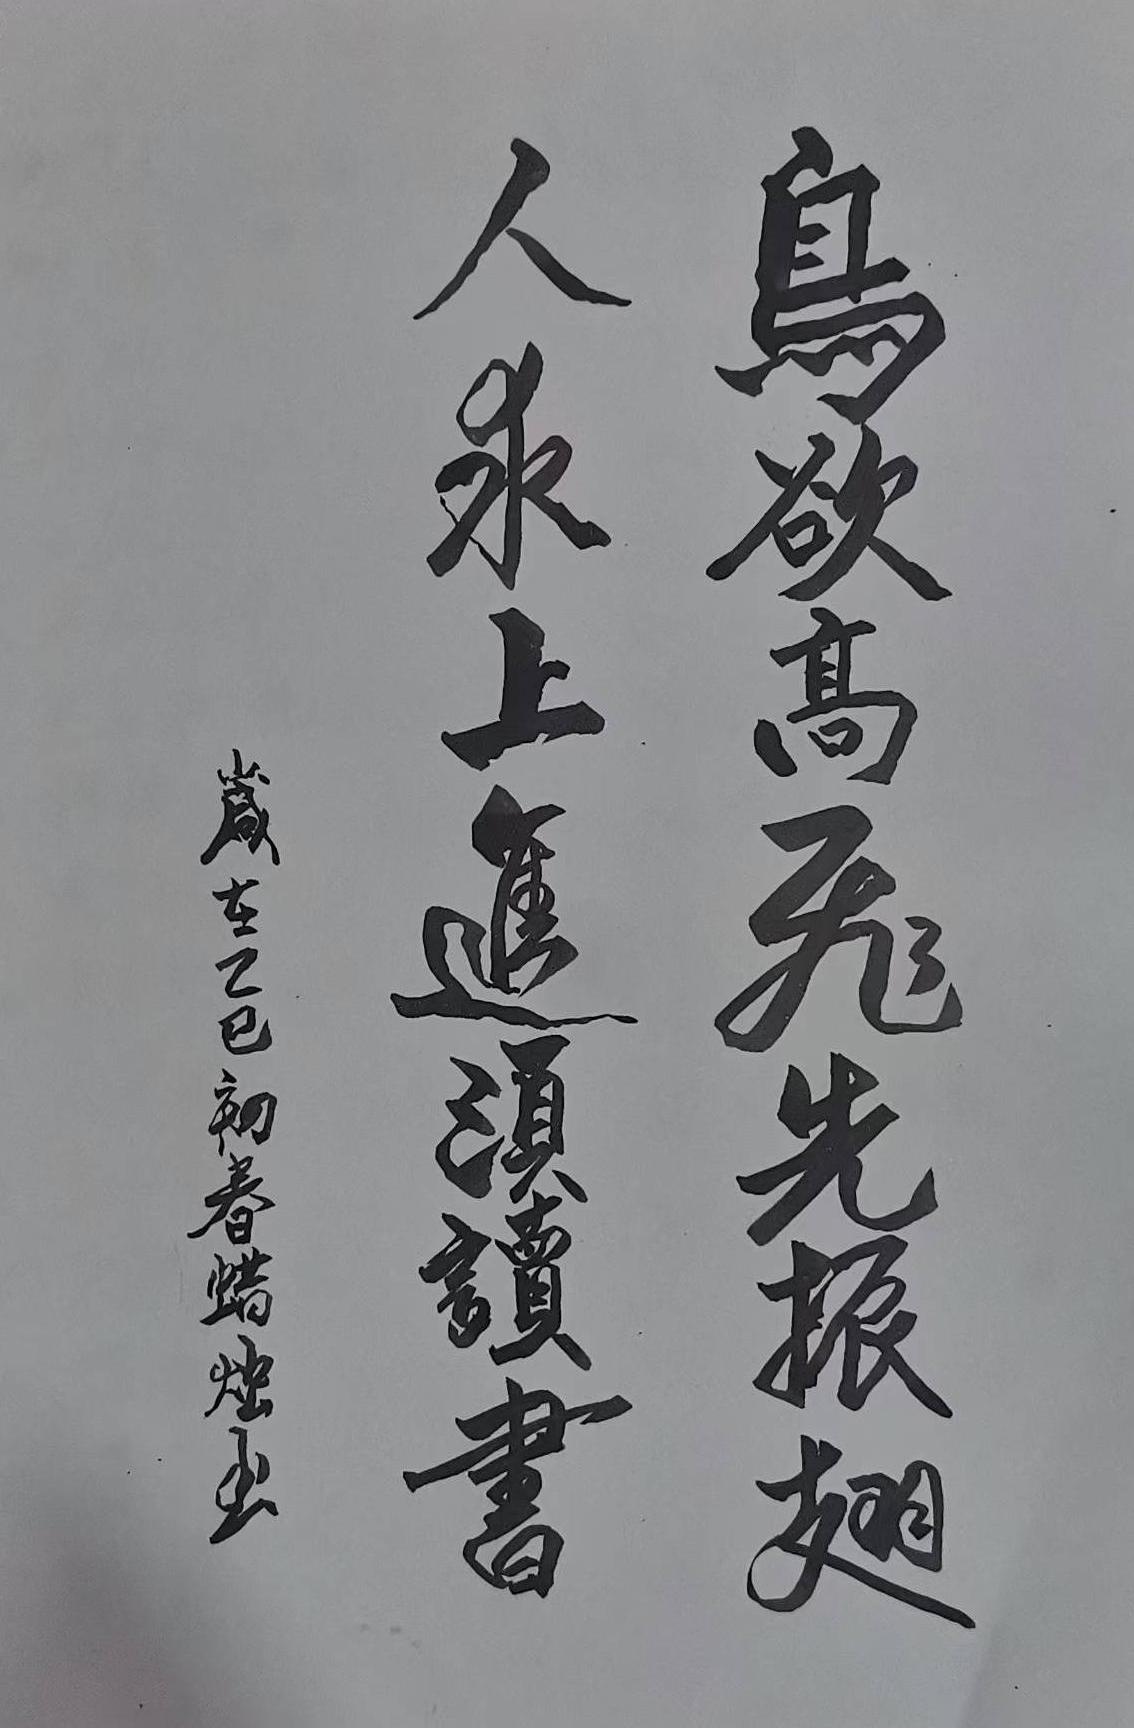 鳥欲高飛先振翅
人求上進須讀書
歲在乙巳初春蜡烛書